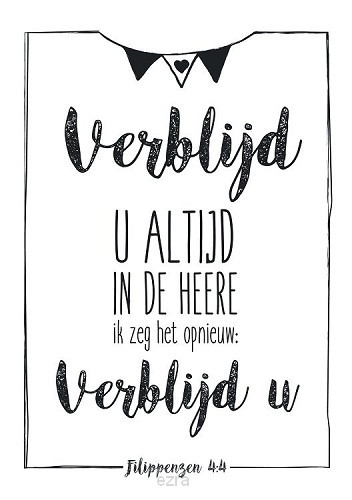 Verblijd
U ALTIJD
IN DE HEERE
ik zeg het opnieuw:
Verblijd u
Filippenzen 4:4
ezra